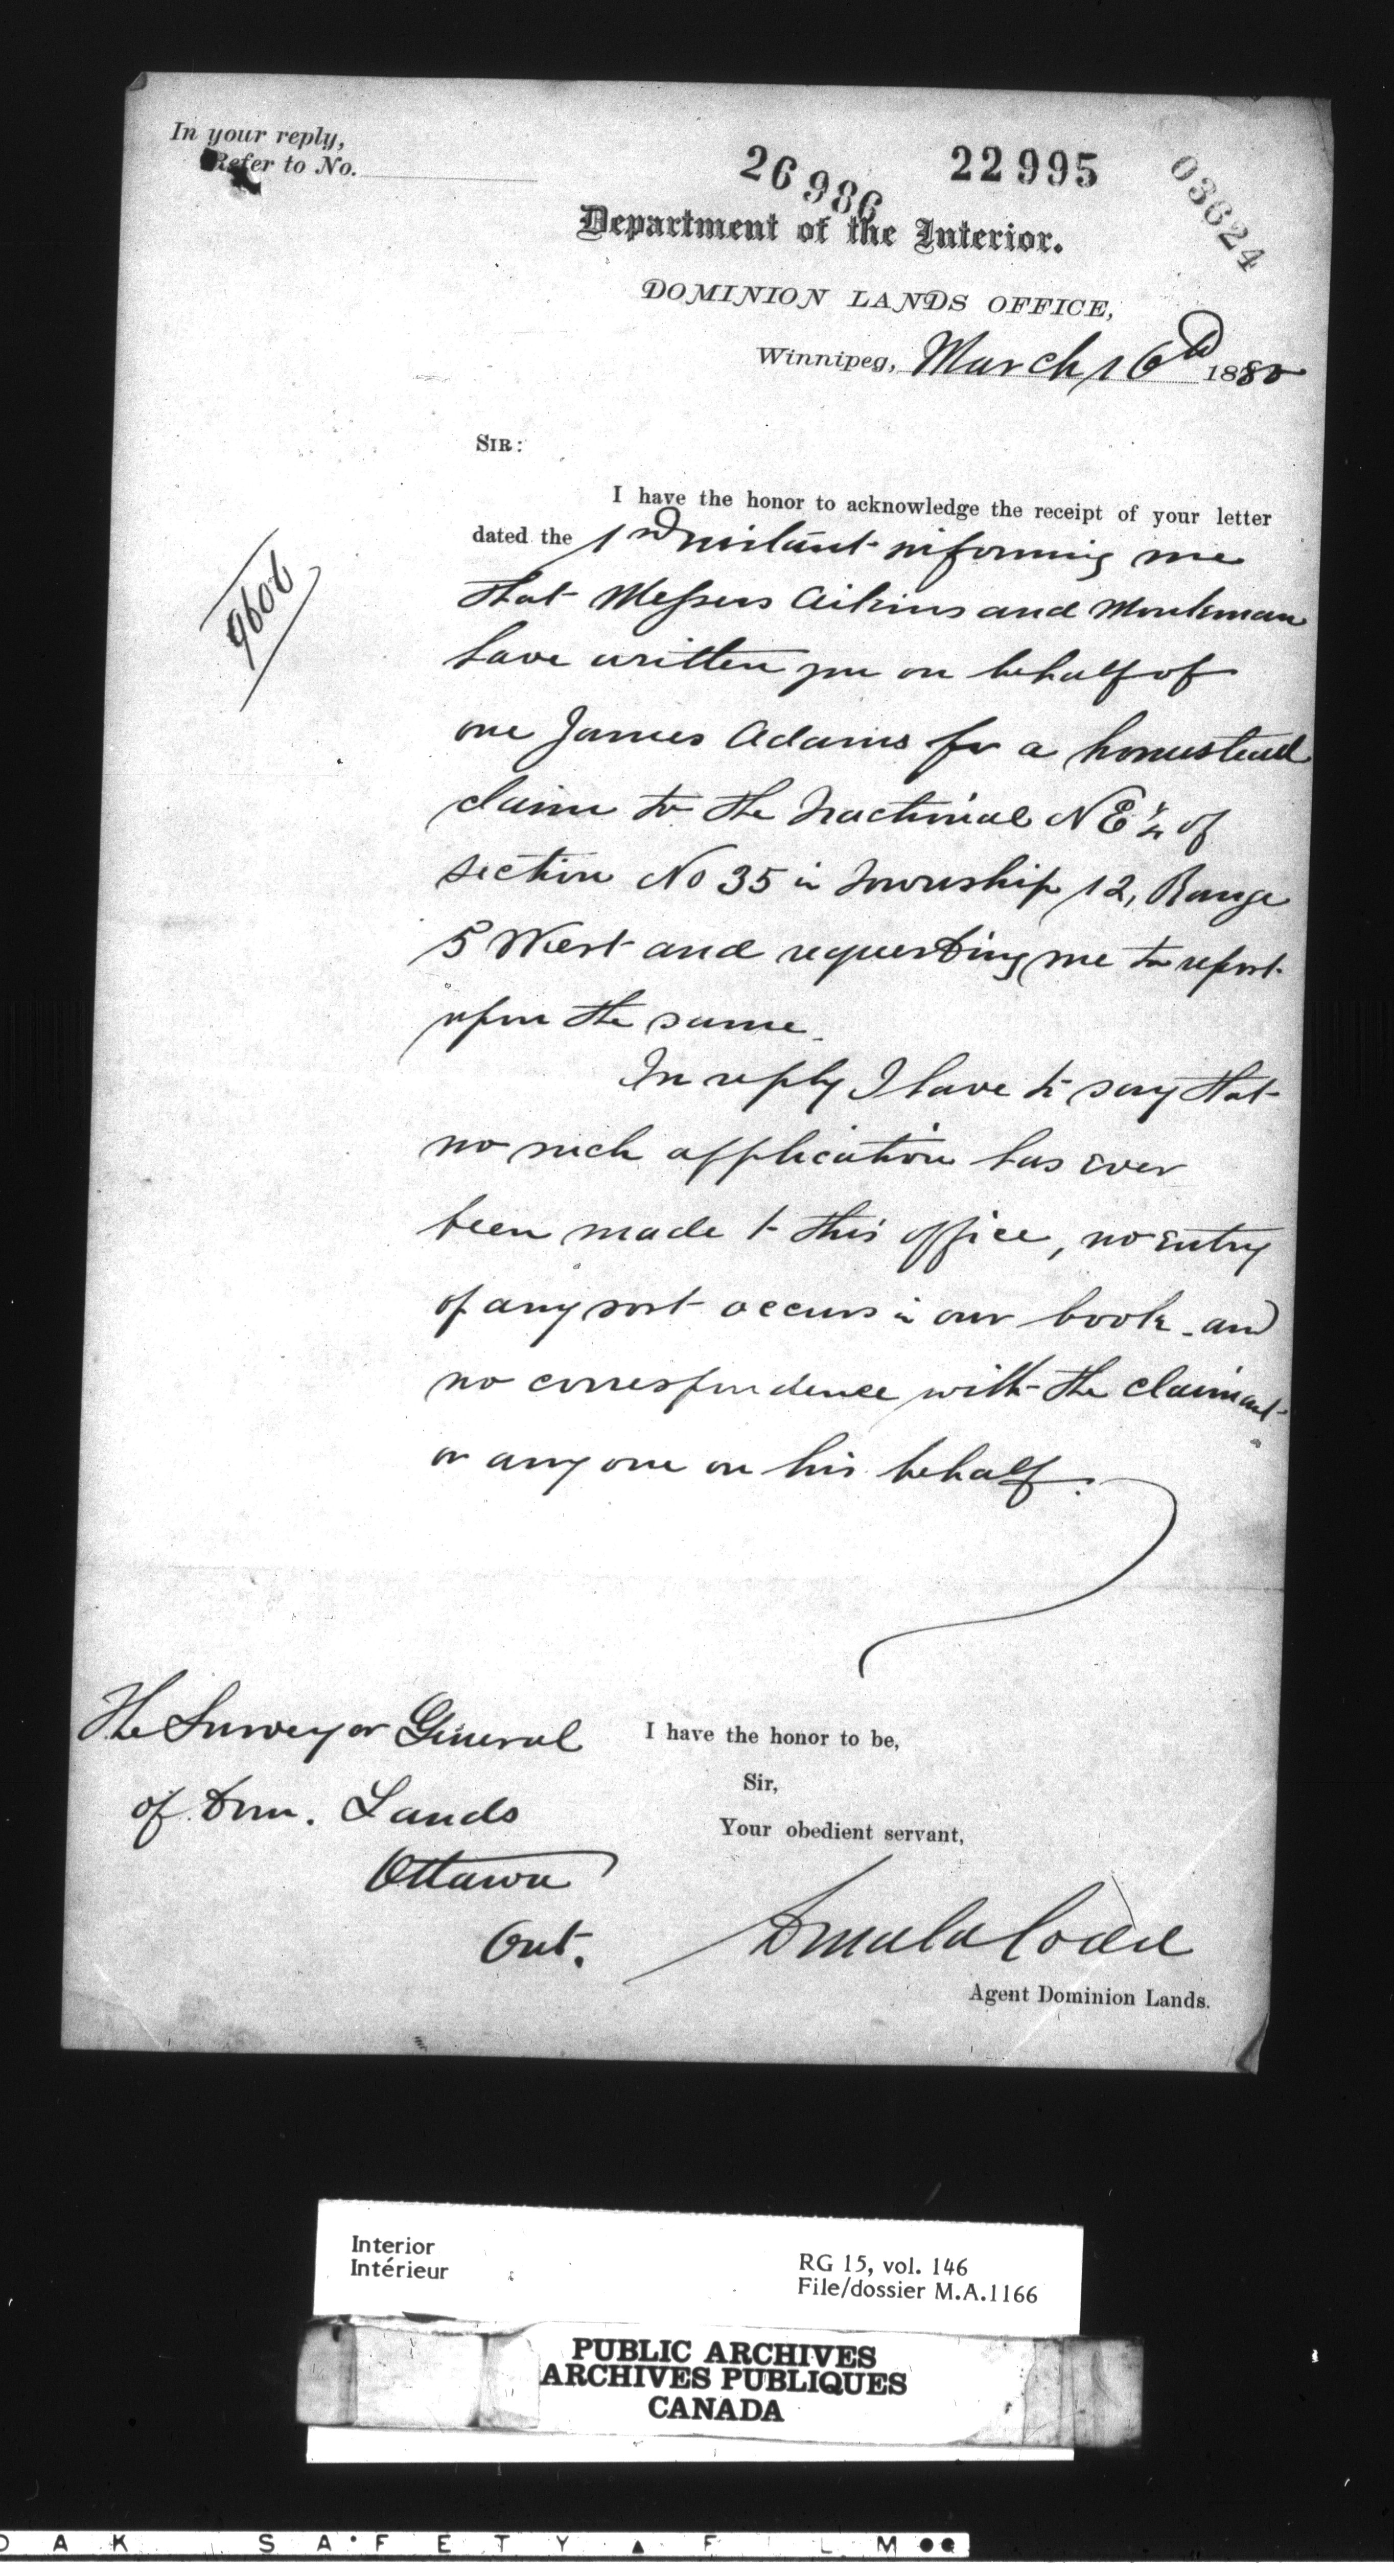 In your reply,
Refer to No.
26986 22995 03624
Department of the Interior.
DOMINION LANDS OFFICE,
Winnipeg, March 16th 1880
SIR:
I have the honor to acknowledge the receipt of your letter
dated the instant informing me
that Messrs Aikins and Monkman
have written you on behalf of
one James Adams for a homestead
claim to the fractional NE 1/4 of
section No 35 in Township 12, Range
5 West and requesting me to report
upon the same.
In reply I have to say that
no such application has ever
been made to this office, no entry
of any sort occurs in our book and
no correspondence with the claimant
or anyone on his behalf.
The Surveyor General
of Dom. Lands
Ottawa
Ont.
I have the honor to be,
Sir,
Your obedient servant,
Codd
Agent Dominion Lands.
Interior
Intérieur
RG 15, vol. 146
File/dossier M.A.1166
PUBLIC ARCHIVES
ARCHIVES PUBLIQUES
CANADA
SAFETY FILM